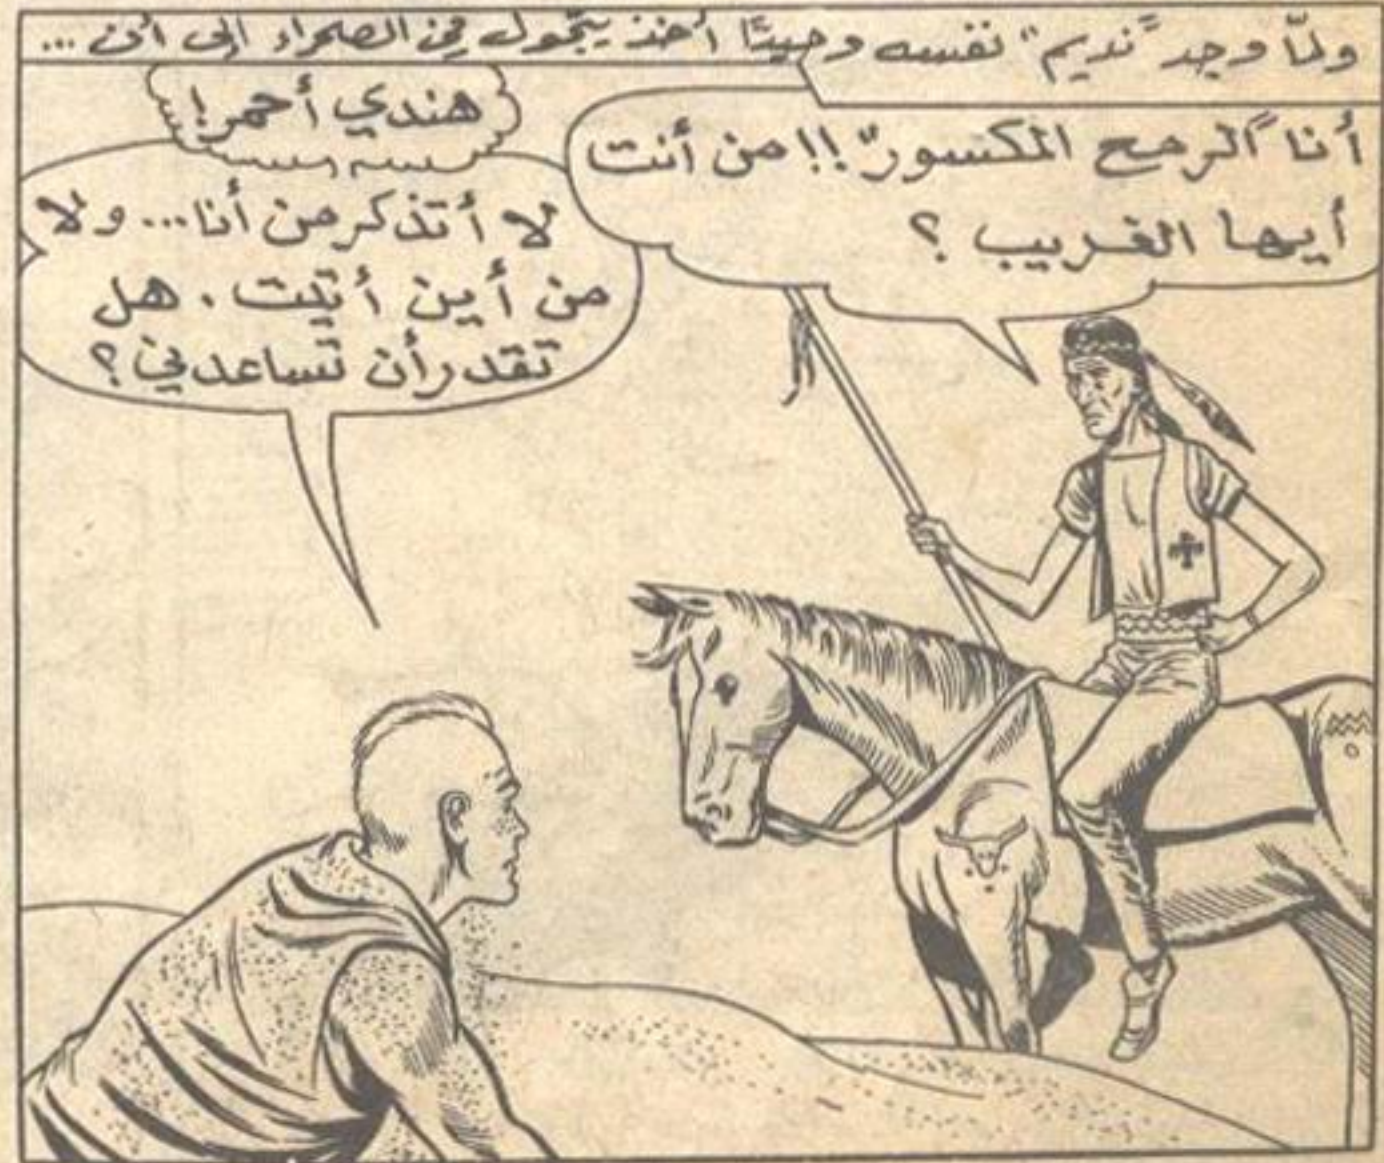 ولمّا وجد "نديم" نفسه وحيدًا أخذ يتجول في الصحراء إلى أن ...
أنا "الرمح المكسور"!! من أنت
أيها الغريب ؟
هندي أحمر!
لا أتذكر من أنا... ولا
من أين أتيت . هل
تقدر أن تساعدني ؟